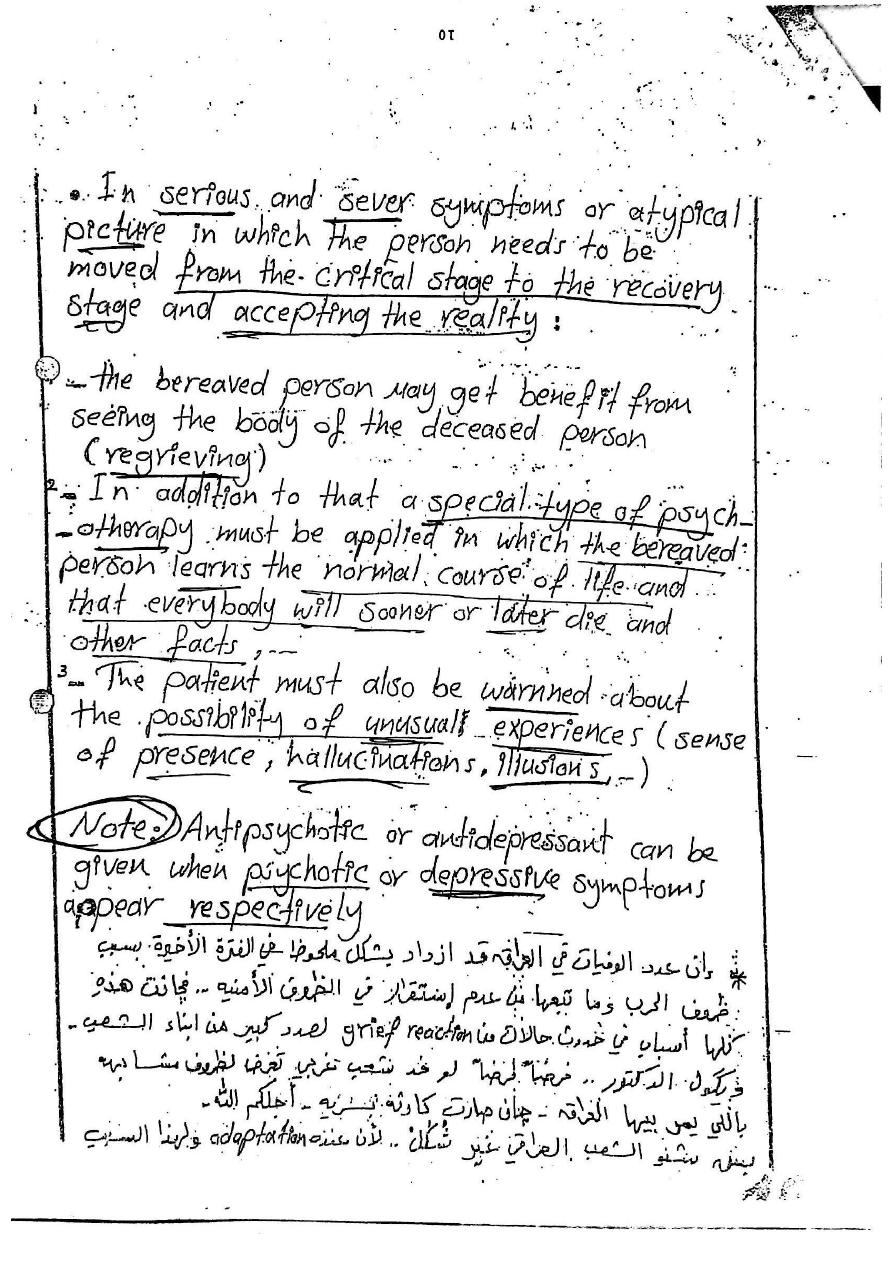 10
• In serious and sever symptoms or atypical
picture in which the person needs to be
moved from the critical stage to the recovery
stage and accepting the reality :
- the bereaved person may get benefit from
seeing the body of the deceased person
(regrieving)
2- In addition to that a special type of psych-
-otherapy must be applied in which the bereaved
person learns the normal course of life and
that everybody will sooner or later die and
other facts , ...
3- The patient must also be warnned about
the possibility of unusual experiences ( sense
of presence , hallucinations , illusions , ... )
Note: Antipsychotic or antidepressant can be
given when psychotic or depressive symptoms
appear respectively
* وإن عدد الوفيات في العراق قد ازداد بشكل ملحوظ في الفترة الأخيرة بسبب
ظروف الحرب وما تبعها من عدم إستقرار في الظروف الأمنيه .. فكانت هذه
كلها أسباب في حدوث حالات من grief reaction لصدد كبير من ابناء الشعب -
ويكول الدكتور .. فرضاً فرضاً لو فد شعب غربي تعرض لظروف مشابهه
باللي يمر بيها العراق - چان صارت كارثة بشريه - أجلكم الله -
بس شنو الشعب العراقي غير شكل .. لأن عنده adaptation ولهذا السبب